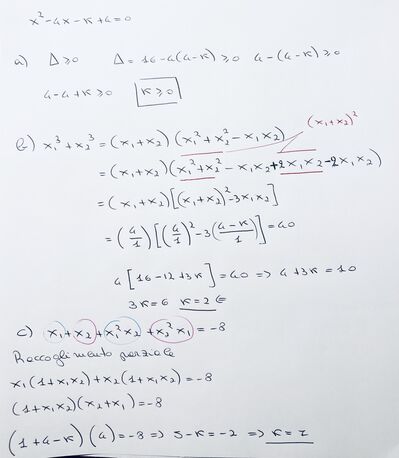 x² - 4x - k + 4 = 0
a) Δ ≥ 0 Δ = 16 - 4(4 - k) ≥ 0 4 - (4 - k) ≥ 0
4 - 4 + k ≥ 0 k ≥ 0
(x₁ + x₂)²
b) x₁³ + x₂³ = (x₁ + x₂) (x₁² + x₂² - x₁x₂)
= (x₁ + x₂) (x₁² + x₂² - x₁x₂ + 2x₁x₂ - 2x₁x₂)
= (x₁ + x₂) [(x₁ + x₂)² - 3x₁x₂]
= (4/1) [(4/1)² - 3((4 - k)/1)] = 40
4[16 - 12 + 3k] = 40 => 4 + 3k = 10
3k = 6 k = 2 ⇐
c) x₁ + x₂ + x₁²x₂ + x₂²x₁ = -8
Raccoglimento parziale
x₁(1 + x₁x₂) + x₂(1 + x₁x₂) = -8
(1 + x₁x₂)(x₂ + x₁) = -8
(1 + 4 - k) (4) = -8 => 5 - k = -2 => k = 7